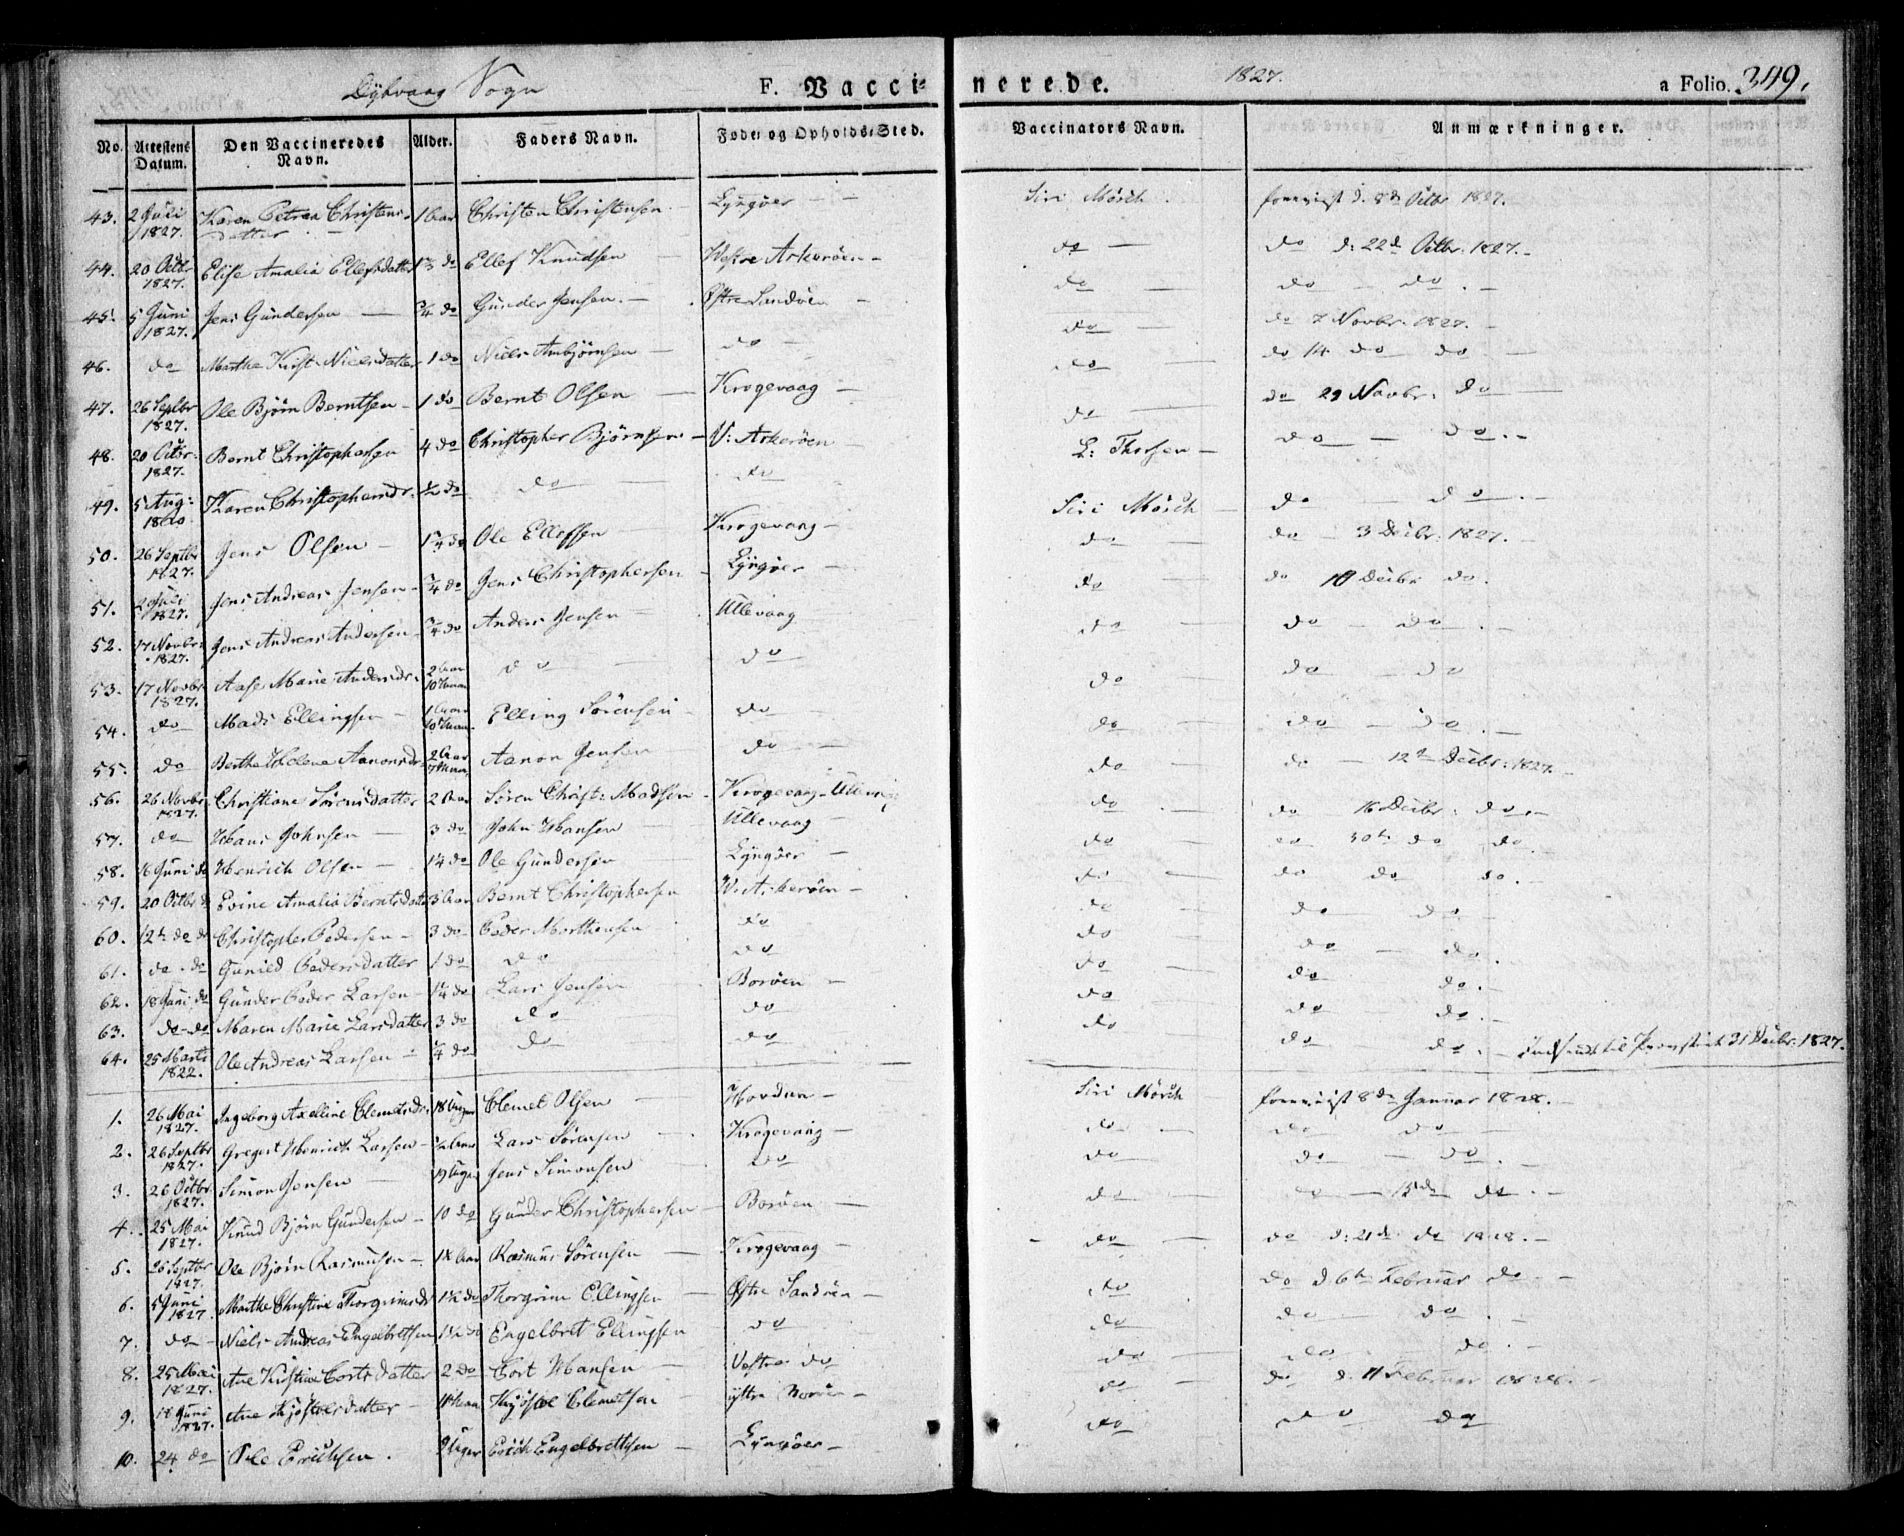 Dybvaag Sogn F. Vaccinerede. 1827. a Folio. 349.
No. Attestens Datum. Den Vaccineredes Navn. Alder. Faders Navn. Føde- og Opholds-Sted. Vaccinators Navn. Anmærkninger.
43. 2 Juli 1827. Karen Petrea Christensdatter 1 Aar Christen Christensen Lyngøer Siri Mørch foreviist d. 8de Octbr 1827.
44. 20 Octbr 1827. Elise Amalia Ellefsdatter do Ellef Knudsen Westre Askerøen do do d: 22de Octbr. 1827.
45. 5 Juni 1827. Jens Gundersen 3/4 do Gunder Jensen. Østre Sandøen do do do.
46. do Marthe Kirst. Nielsdatter 1 do Niels Anbjørnsen do do do 7 Novbr. 1827.
47. 26 Septbr 1827. Ole Bjørn Berntsen 1 do Bernt Olsen Krogevaag do do 14 do do.
48. 20 Octbr. 1827. Bernt Christophersen 4 do Christopher Bjørnsen V: Askerøen do do 29 Novbr. do
49. 5 Aug: Karen Christophersdr. 1/2 do do do L: Thorsen do do.
50. 26 Septbr 1827. Jens Olsen 1 1/4 do Ole Ellefsen Krogevaag Siri Mørch do do.
51. 2 Juli 1827. Jens Andreas Jensen 3/4 do Jens Christophersen Lyngøer do do 3 Decbr. 1827.
52. 17 Novbr. 1827. Jens Andreas Andersen 3/4 do Anders Jensen Ullevaag do do 10 Decbr do.
53. 17 Novbr. 1827. Aase Marie Andersdr. 2 Aar 10 do do do do do.
54. do Mads Ellingsen 1 Aar 10 Elling Sørensen do do do do
55. do Berthe Helene Aanonsdr. 2 Aar 7 Aanon Jensen do do do do.
56. 26 Novbr. 1827. Christiane Sørensdatter 2 Aar Søren Christ: Madsen Krogevaag do do 12te Decbr: 1827.
57. do Hans Johnsen 3 do John Hansen Ullevaag do do 16 Decbr. do.
58. 16 Juni do Henrich Olsen 1 1/4 do Ole Gundersen Lyngøer do do 30te do do
59. 20 Octbr Evine Amalia Berntsdatter 3 Aar Bernt Christophersen V: Askerøen do do do do.
60. 12te do do Christopher Pedersen 3 do Peder Morthensen do do do do.
61. do do Gunild Pedersdatter 1 do do do do do do.
62. 18 Juni do Gunder Peder Larsen 1 1/4 do Lars Jensen Borøen do do do.
63. do do Maren Marie Larsdatter 3 do do do do do do.
64. 25 Marts 1822. Ole Andreas Larsen do do do do do do. Indsendt til Provstiet 31 Decbr. 1827.
1. 26 Mai 1827. Ingeborg Axelline Clemetsdr. 18 Uger Clemet Olsen Hovden Siri Mørch foreviist 8de Januar 1828.
2. 26 Septbr 1827. Gregert Henrich Larsen 1/2 Aar Lars Sørensen Krogevaag do do do
3. 26 Octbr. 1827. Simon Jensen 19 Uger Jens Simonsen do do do do.
4. 25 Mai 1827. Knud Bjørn Gundersen 10 do Gunder Christophersen Borøen do do 15de do.
5. 26 Septbr 1827. Ole Bjørn Rasmussen Aar Rasmus Sørensen Krogevaag do do d: 21de do 1828.
6. 5 Juni 1827. Marthe Christine Thorgrimsdr 1 1/2 do Thorgrim Ellingsen Østre Sandøen do do d 6te Februar do.
7. do Niels Andreas Engelbretsen 1 1/2 do Engelbret Ellingsen do do do do.
8. 25 Mai 1827. Ane Kirstine Cortsdatter 2 do Cort Hansen Vestre do do do do.
9. 18 Juni 1827. Ane Kjøstelsdatter Aar Kjøstel Clemetsen yttre Borøen do do d. 11 Februar 1828.
10. 24 do Ole Erichsen. 9 Uger Erich Engelbretsen Lyngøer do do do